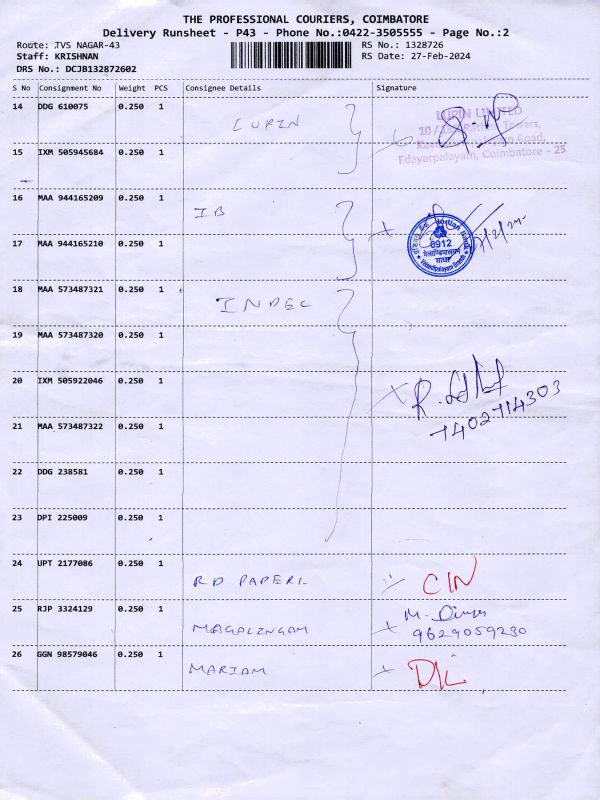 THE PROFESSIONAL COURIERS, COIMBATORE
Delivery Runsheet - P43 - Phone No.:0422-3505555 - Page No.:2
Route: TVS NAGAR-43
RS No.: 1328726
Staff: KRISHNAN
RS Date: 27-Feb-2024
DRS No.: DCJB132872602
S No Consignment No Weight PCS Consignee Details Signature
14 DDG 610075 0.250 1
LUPIN
LUPIN LIMITED
15 IXM 505945684 0.250 1
Edayarpalayam, Coimbatore - 25
16 MAA 944165209 0.250 1
IB
17 MAA 944165210 0.250 1
6912
18 MAA 573487321 0.250 1
INDEC
19 MAA 573487320 0.250 1
20 IXM 505922046 0.250 1
7402714303
21 MAA 573487322 0.250 1
22 DDG 238581 0.250 1
23 DPI 225009 0.250 1
24 UPT 2177086 0.250 1
RD PAPERS
25 RJP 3324129 0.250 1
MAGALINGAM
9629059230
26 GGN 98579046 0.250 1
MARIAM